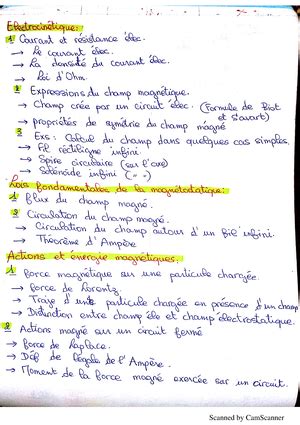 Electrocinétique:
1 Courant et résistance élec.
→ Le courant élec.
→ La densité du courant élec.
→ Loi d'Ohm.
2 Expressions du champ magnétique.
→ Champ crée par un circuit élec. (Formule de Biot et Savart)
→ propriétés de symétrie du champ magné
3 Exs: Calcul du champ dans quelques cas simples.
→ Fil réctiligne infini.
→ Spire circulaire (sur l'axe)
→ Solénoïde infini (" ")
Lois fondamentales de la magnétostatique:
1 flux du champ magné.
2 Circulation du champ magné.
→ Circulation du champ autour d'un fil infini.
→ Théorème d'Ampère
Actions et énergie magnétiques.
1 force magnétique sur une particule chargée.
→ force de Lorentz.
→ Traj d'une particule chargée en présence d'un champ
→ Distinction entre champ éle et champ électrostatique.
2 Actions magné sur un circuit fermé
→ force de Laplace.
→ Déf de l'Ampère.
→ Moment de la force magné exercée sur un circuit.
Scanned by CamScanner